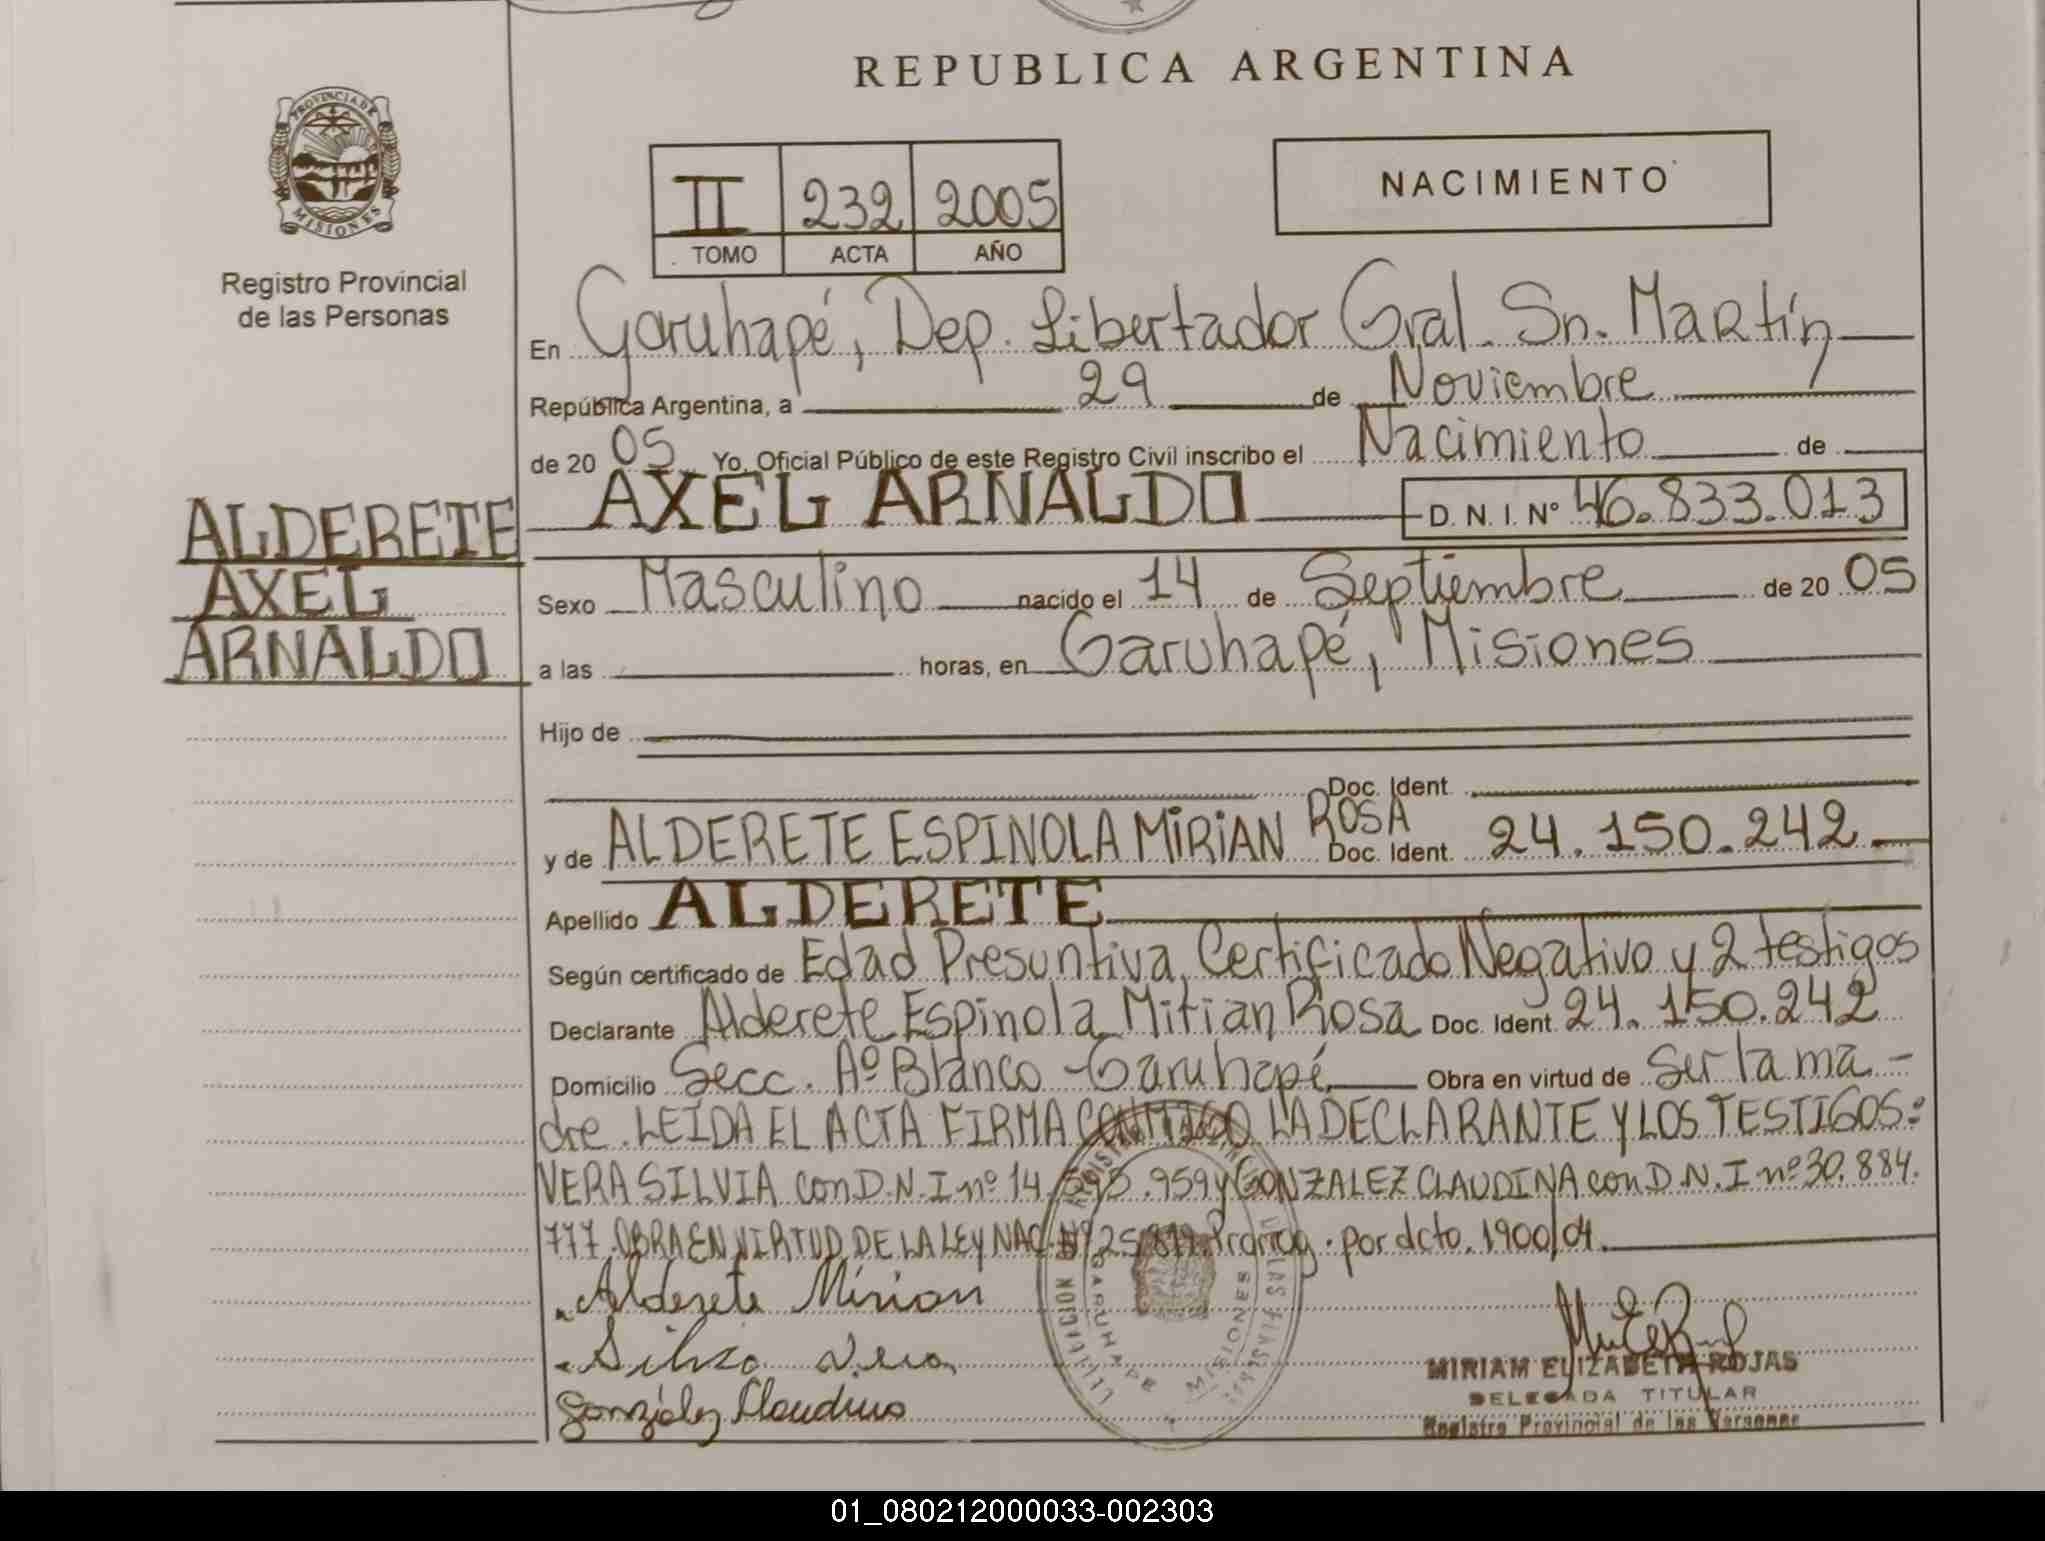 REPUBLICA ARGENTINA
PROVINCIA DE
MISIONES
Registro Provincial
de las Personas
II 232 2005
TOMO ACTA AÑO
NACIMIENTO
En Garuhapé, Dep. Libertador Gral. Sn. Martín
República Argentina, a 29 de Noviembre
de 20 05 Yo, Oficial Público de este Registro Civil inscribo el Nacimiento de
AXEL ARNALDO D. N. I. Nº 46.833.013
ALDERETE
AXEL
ARNALDO
Sexo Masculino nacido el 14 de Septiembre de 20 05
a las horas, en Garuhapé, Misiones
Hijo de
Doc. Ident.
y de ALDERETE ESPINOLA MIRIAN ROSA Doc. Ident. 24.150.242
Apellido ALDERETE
Según certificado de Edad Presuntiva, Certificado Negativo y 2 testigos
Declarante Alderete Espinola Mirian Rosa Doc. Ident. 24.150.242
Domicilio Secc. Aº Blanco - Garuhapé Obra en virtud de ser la ma-
dre. LEIDA EL ACTA FIRMA CONMIGO LA DECLARANTE Y LOS TESTIGOS:
VERA SILVIA con D.N.I nº 14. .959 y GONZALEZ CLAUDINA con D.N.I nº 30.884.
777. OBRA EN VIRTUD DE LA LEY NAC. Nº 25. Prorrog. por dcto. 1900/04.
Alderete Mirian
Silvia Vera
González Claudina
GARUHAPE
MISIONES
MIRIAM ELIZABETH ROJAS
DELEGADA TITULAR
Registro Provincial de las Personas
01_080212000033-002303